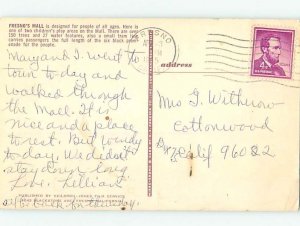 FRESNO'S MALL is designed for people of all ages. Here is
one of two children's play areas on the Mall. There are over
150 trees and 27 water features, also a small tram that
carries passengers the full length of the six block
made for the people.
Mary and I went to
town to day and
walked through
the Mall. It is
nice and a place
to rest. But windy
to day. We didn't
stay down long
Love. Lillian
FRESNO
address
Mrs I. Withrow
Cottonwood
Calif 96022